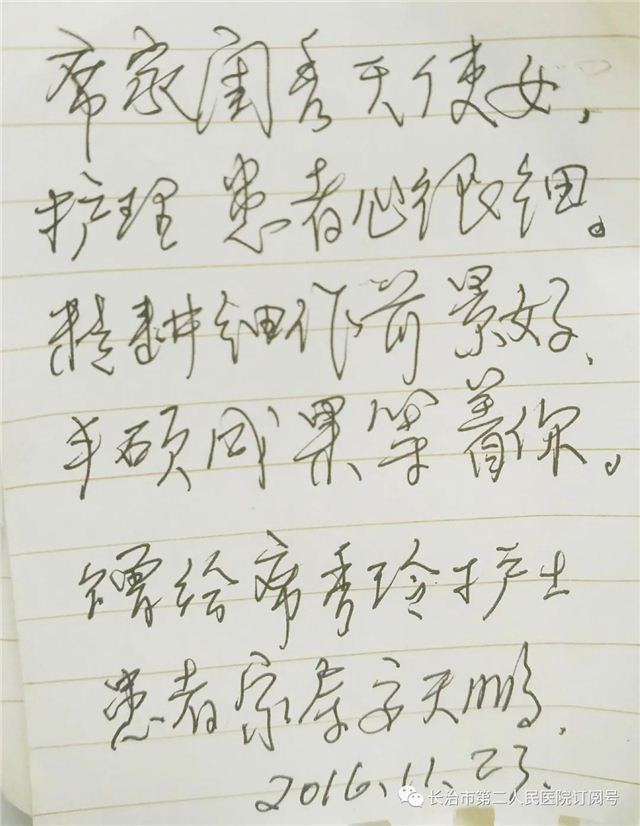 席家闺秀天使女,
护理患者心很细。
精耕细作前景好,
丰硕成果等着你。
赠给席秀玲护士
患者家李天鹏.
2016.11.23.
长治市第二人民医院订阅号